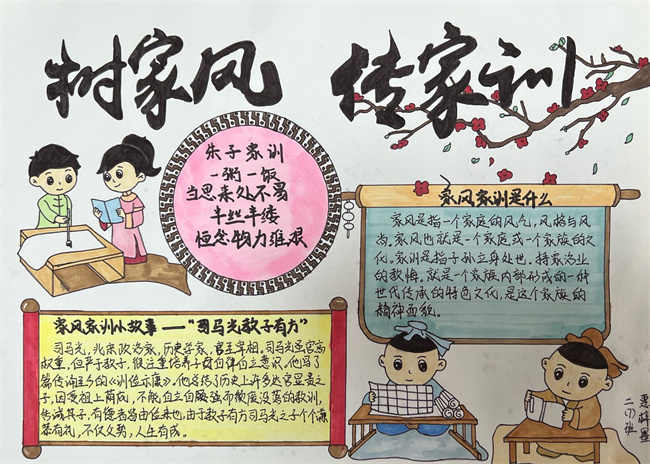 树家风 传家训
朱子家训
一粥一饭
当思来处不易
半丝半缕
恒念物力维艰
家风家训是什么
家风是指一个家庭的风气，风格与风
尚，家风也就是一个家庭或一个家族的文
化。家训是指子孙立身处世、持家治业
的教悔。就是一个家族内部形成的一种
世代传承的特色文化，是这个家族的
精神面貌。
家风家训小故事——“司马光教子有方”
司马光，北宋政治家，历史学家，官至宰相。司马光虽官高
权重，但严于教子，很注重培养子孩自律自立意识，他写了
篇传诵至今的《训俭示康》，他总结了历史上许多达官显贵之
子，因受祖上荫庇，不能自立自强而颓废没落的教训，
告诫其子，有德者皆由俭来也，由于教子有方司马光之子个个谦
恭有礼，不仅父势，人生有成。
二(1)班